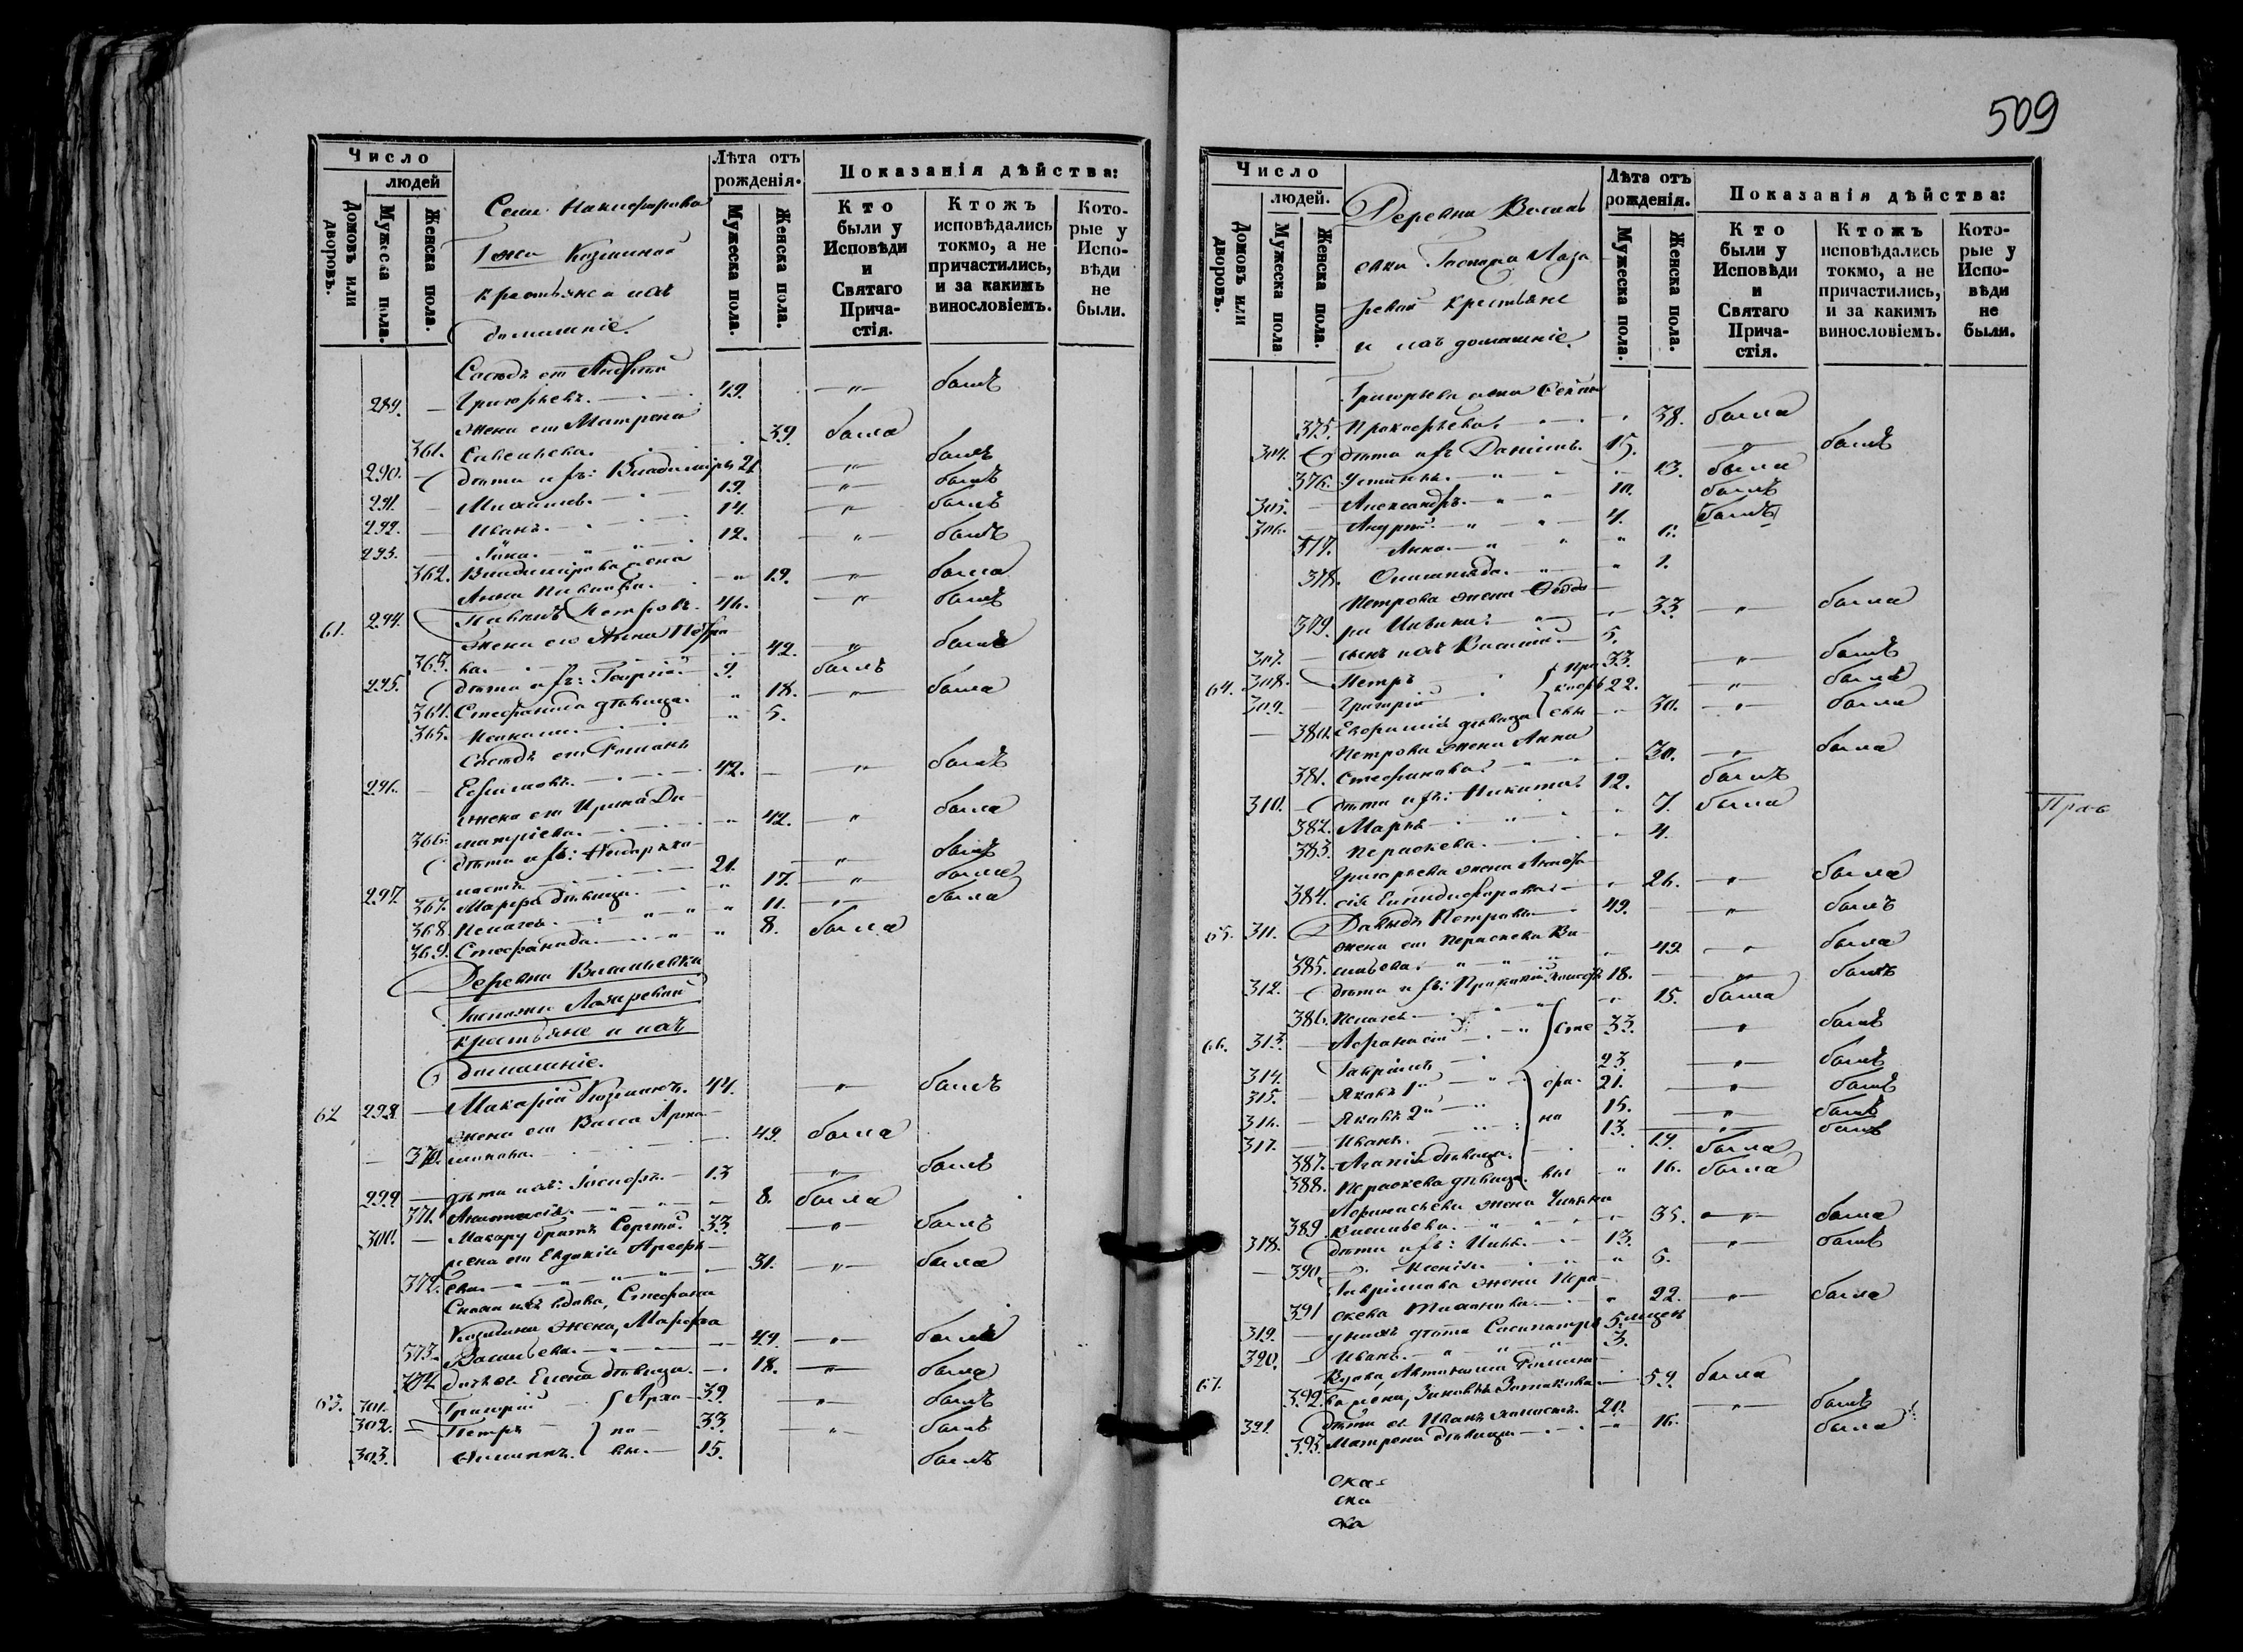 Число
людей
Домовъ или дворовъ.
Мужеска пола.
Женска пола.
Села Никифорова
Г жи Козминой
крестьяне и ихъ
домашніе.
Лѣта отъ
рожденія.
Мужеска пола.
Женска пола.
Показанія дѣйства:
Кто
были у
Исповѣди
и
Святаго
Прича-
стія.
Ктожъ
исповѣдались
токмо, а не
причастились,
и за какимъ
винословіемъ.
Кото-
рые у
Испо-
вѣди
не
были.
Сосѣдъ его Андрей
289. — Григорьевъ. 49. — „ — былъ
жена его Матрона
361. Савельева. 39. была
290. — дѣти ихъ: Владиміръ 21. — „ — былъ
291. — Михаилъ. 19. — „ — былъ
292. — Иванъ. 14. — „ — былъ
293. — 12. — „ — былъ
Владимірова жена
362. Анна 19. — „ — была
61. 294. Петровъ. 46. — „ — былъ
жена его Анна Петро-
363. ва. 42. — „ — была
295. дѣти ихъ: Георгій 9. былъ
364. Стефанида дѣвица. „ 18. — „ — была
365. „ 5.
Сосѣдъ его Романъ
296. — Ефимовъ. 42. — „ — былъ
жена его Ирина Ди-
366. митріева. „ 42. — „ — была
дѣти ихъ:
297. 21. — „ — былъ
367. Марфа дѣвица. „ 17. — „ — была
368. Пелагея. „ 11. — „ — была
369. Стефанида. „ 8. была
Деревни Васильевки
Госпожи Лазаревой
крестьяне и ихъ
домашніе.
62 298. — Макарій Козминъ. 44. — „ — былъ
жена его Васса Арта-
370. монова. 49. была
299 — дѣти ихъ: Іосифъ. 13 — „ — былъ
371. Анастасія. 8. была
300. — Макару братъ Сергей. 33 — „ — былъ
жена его Евдокія Арефь-
372. ева. 31. — „ — была
Сноха ихъ вдова, Стефана
Козмина жена, Марфа
373. Васильева. 49. — „ — была
374. дочь ея Елена дѣвица. 18. — „ — была
63. 301. Григорій Архи- 39. — „ — былъ
302. — Петръ по- 33. — „ — былъ
303. вы. 15. былъ
509
Число
людей.
Домовъ или дворовъ.
Мужеска пола
Женска пола.
Деревни Василь-
евки Госпожи Лаза-
ревой крестьяне
и ихъ домашніе.
Лѣта отъ
рожденія.
Мужеска пола.
Женска пола.
Показанія дѣйства:
Кто
были у
Исповѣди
и
Святаго
Прича-
стія.
Ктожъ
исповѣдались
токмо, а не
причастились,
и за какимъ
винословіемъ.
Кото-
рые у
Испо-
вѣди
не
были.
Григорьева жена
375. Прокофьева. 38. была
304. дѣти ихъ Даніилъ. 15. — „ — былъ
376. Устинья. 13. была
305. — Александръ. 10. былъ
306. — Андрей. 4. былъ
377. Анна. „ 6.
378. Олимпіада. „ 1.
Петрова жена Ѳедо-
379. ра 33. — „ — была
307. — сынъ ихъ Василій. 5.
64. 308. Петръ Про- 33. — „ — былъ
309. — Григорій кофь- 22. — „ — былъ
380. Евфимія дѣвица евы „ 30. — „ — была
Петрова жена Анна
381. Стефанова. 30. — „ — была
310. — дѣти ихъ: Никита 12. былъ
382. Марья „ 7. была
383. Параскева. „ 4.
Прас
Григорьева жена
384. 26. — „ — была
65. 311. Давыдъ Петровъ 49. — „ — былъ
жена его Параскева Ва-
385. сильева. 49 — „ — была
312. — дѣти ихъ: 18. — „ — былъ
386. Пелагея 15. была
66. 313. — Афанасій Сте 33. — „ — былъ
314. Гавріилъ 23. — „ — былъ
315. — Яковъ 1й фа- 21. — „ — былъ
316. — Яковъ 2й но 15. — „ — былъ
317. — Иванъ. 13. — „ — былъ
387. Агапія дѣвица. 19. была
388. Параскева дѣвица. вы „ 16. была
Афанасьева жена
389. Васильева. 35. — „ — была
318. дѣти ихъ: 13. — „ — былъ
390. Ксенія. „ 5.
Гавріилова жена Пара-
391 скева 22. — „ — была
319. — у нихъ дѣти Сосипатръ 5.
320. — Иванъ. 3.
67. Вдова,
392. жена, Зиновья 59. была
321. дѣти ея Иванъ 20. — „ — былъ
393. Матрона дѣвица 16. была
ска-
ска
ка